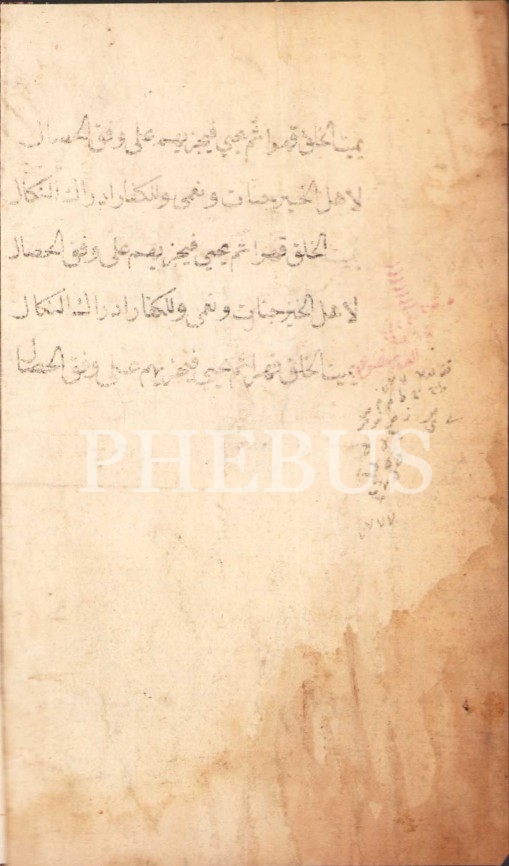 يميت الخلق قهرا ثم يحيي فيجزيهم على وفق الخصال
لاهل الخير جنات ونعمى وللكفار ادراك النكال
يميت الخلق قهرا ثم يحيي فيجزيهم على وفق الخصال
لاهل الخير جنات ونعمى وللكفار ادراك النكال
يميت الخلق قهرا ثم يحيي فيجزيهم على وفق الخصال
PHEBUS